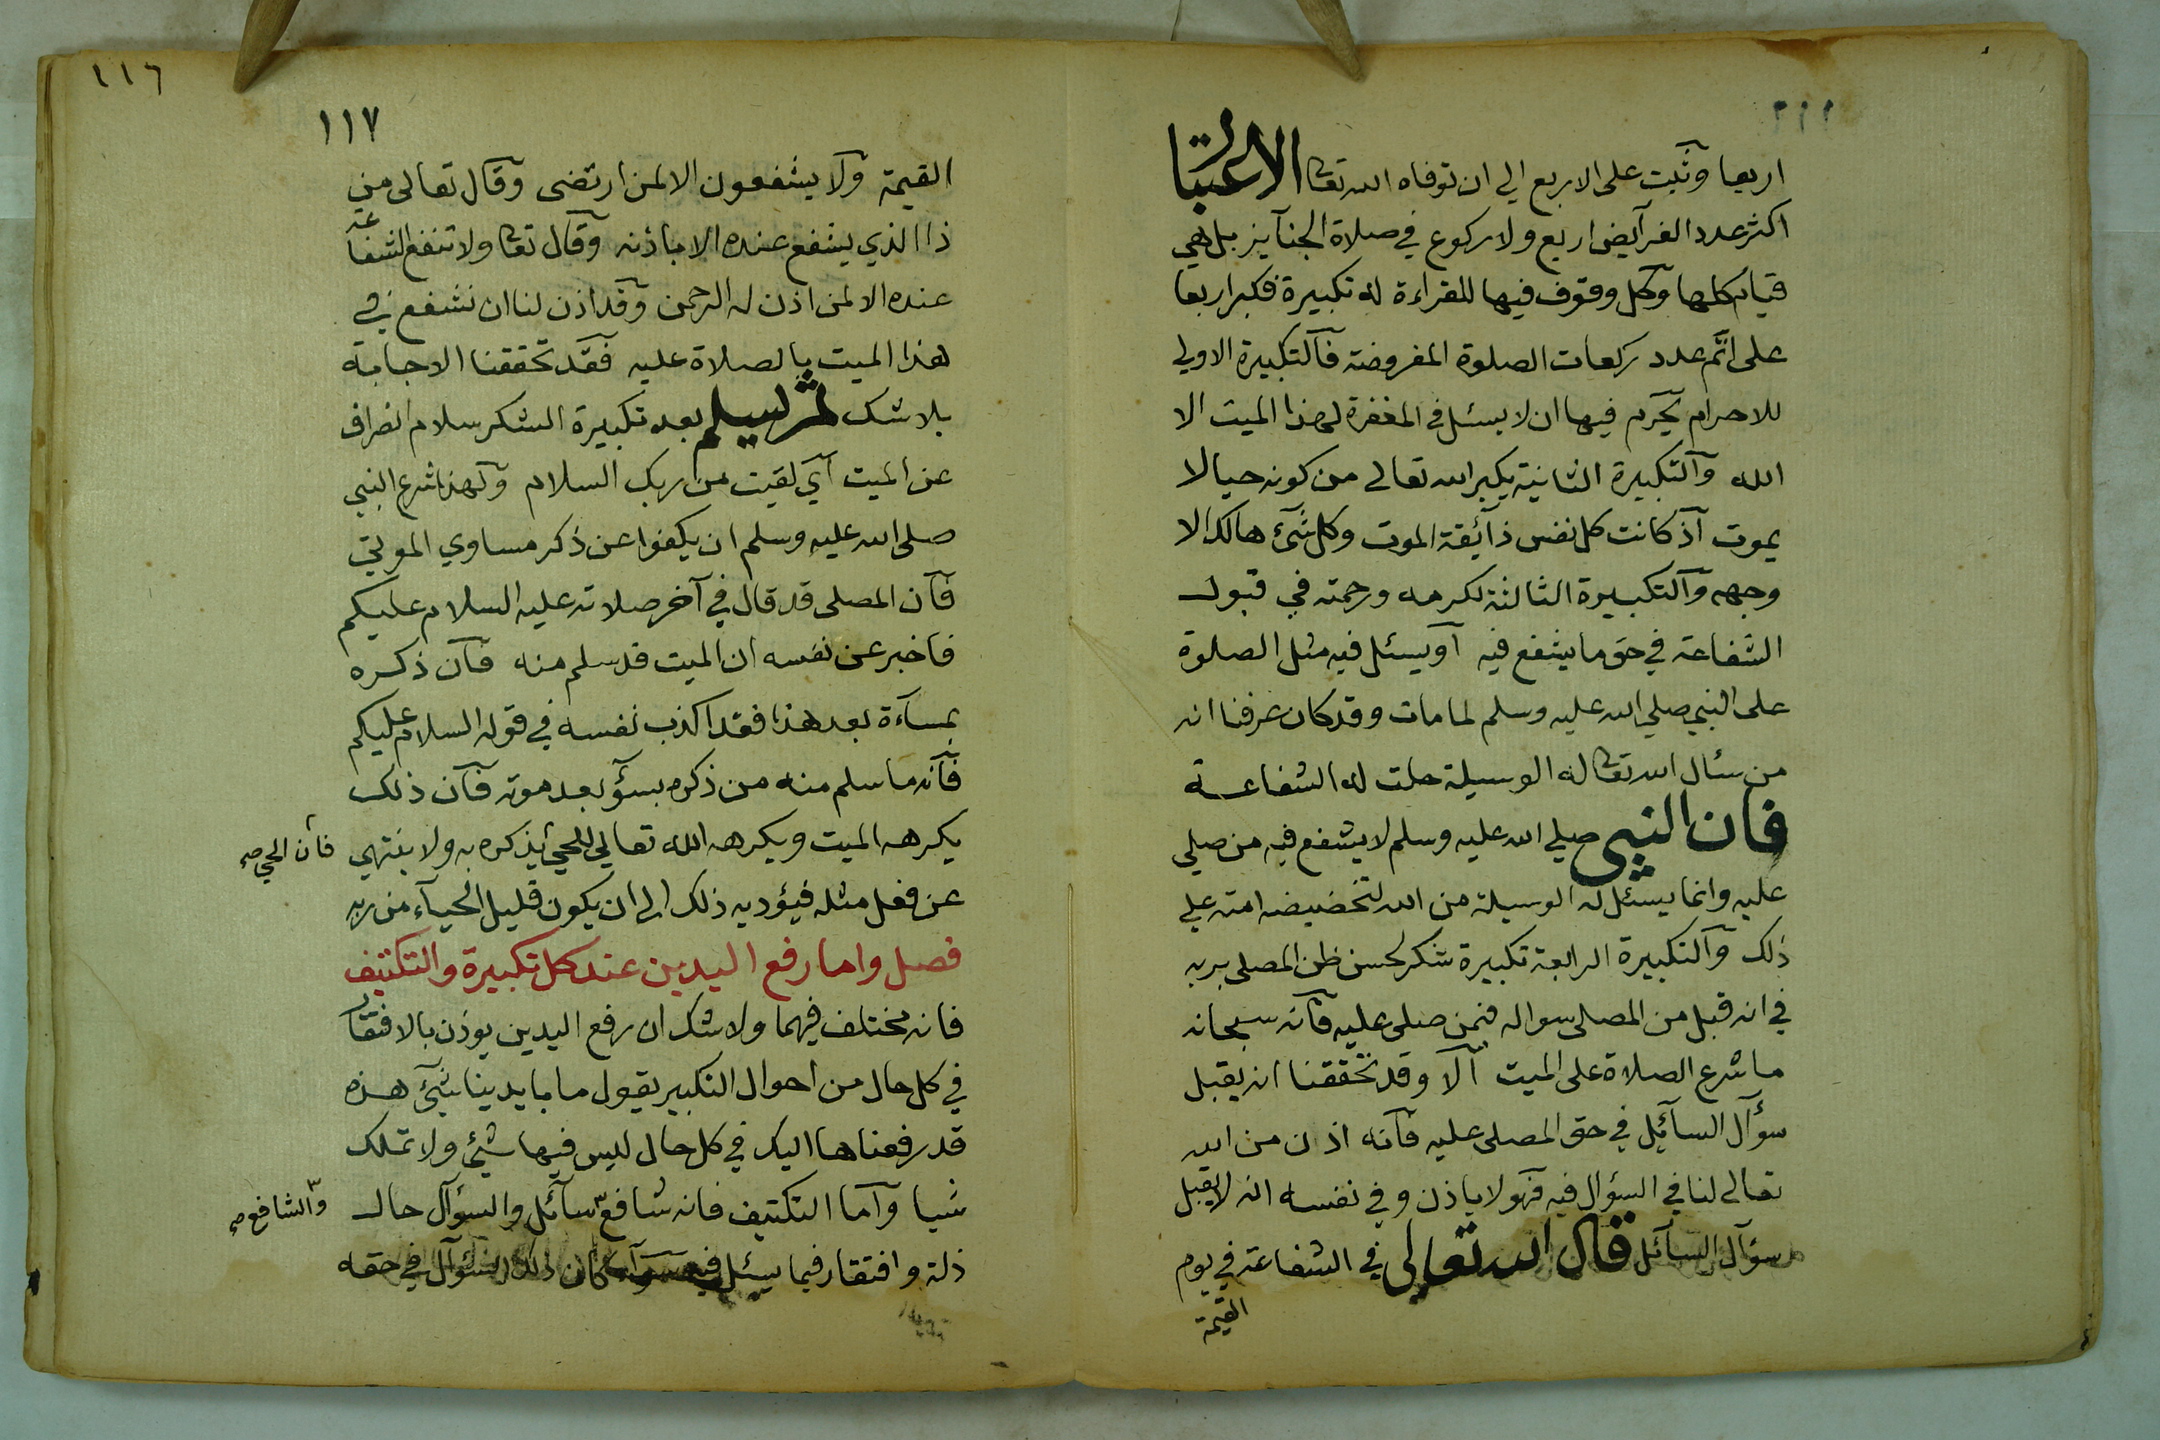 اربعا وثبت على الاربع الي ان توفاه الله تعا الاعتبار
اكثر عدد الفرآيض اربع ولا ركوع في صلاة الجنآيز بل هي
قيام كلها وكل وقوف فيها للقراءة له تكبيرة فكبر اربعا
على اتم عدد ركعات الصلوة المفروضة فالتكبيرة الاولي
للاحرام يحرم فيها ان لا يسئل في المغفرة لهذا الميت الا
الله والتكبيرة الثانية يكبر الله تعالى من كونه حيا لا
يموت اذ كانت كل نفس ذآئقة الموت وكل شئ هالك الا
وجهه والتكبيرة الثالثة لكرمه ورحمته في قبول
الشفاعة في حق ما يشفع فيه او يسئل فيه مثل الصلوة
على النبي صلي الله عليه وسلم لما مات وقد كان عرفنا انه
من سئال الله تعا له الوسيلة حلت له الشفاعة
فان النبي صلي الله عليه وسلم لا يشفع فيه من صلي
عليه وانما يسئل له الوسيلة من الله لتخضيضه امته علي
ذلك والتكبيرة الرابعة تكبيرة شكر لحسن ظن المصلى بربه
في انه قبل من المصلى سواله فمن صلى عليه فانه سبحانه
ما شرع الصلاة على الميت الا وقد تحققنا انه يقبل
سؤال السآئل في حق المصلى عليه فانه اذن من الله
تعالى لنا في السؤال فيه فهو لا ياذن وفي نفسه انه لا يقبل
سؤال السآئل قال الله تعالى في الشفاعة في يوم
القيمة
١١٦
١١٧
القيمة ولا يشفعون الا لمن ارتضى وقال تعالى من
ذا الذي يشفع عنده الا باذنه وقال تعا ولا تنفع الشفاعة
عنده الا لمن اذن له الرحمن وقد اذن لنا ان نشفع في
هذا الميت بالصلاة عليه فقد تحققنا الاجابة
بلا شك ثم يسلم بعد تكبيرة الشكر سلام انصراف
عن الميت اي لقيت من ربك السلام ولهذا شرع النبي
صلى الله عليه وسلم ان يكفوا عن ذكر مساوي الموتي
فان المصلى قد قال في آخر صلاته عليه السلام عليكم
فاخبر عن نفسه ان الميت قد سلم منه فان ذكره
بمسآءة بعد هذا فقد اكذب نفسه في قوله السلام عليكم
فانه ما سلم منه من ذكره بسؤ بعد موته فان ذلك
يكرهه الميت ويكرهه الله تعالي للحي يذكره به ولا ينتهي
فان الحي صح
عن فعل مثله فيؤديه ذلك الى ان يكون قليل الحيآء من ربه
فصل واما رفع اليدين عند كل تكبيرة والتكتيف
فانه مختلف فيهما ولا شك ان رفع اليدين يوذن بالافتقار
في كل حال من احوال التكبير يقول ما بايدينا شئ هذه
قد رفعناها اليك في كل حال ليس فيها شئ ولا تملك
شيا واما التكتيف فانه شافع سآئل والسؤال حال
والشافع صح
ذلة وافتقار فيما يسئل فيه سوآء كان ذلك السؤال في حقه